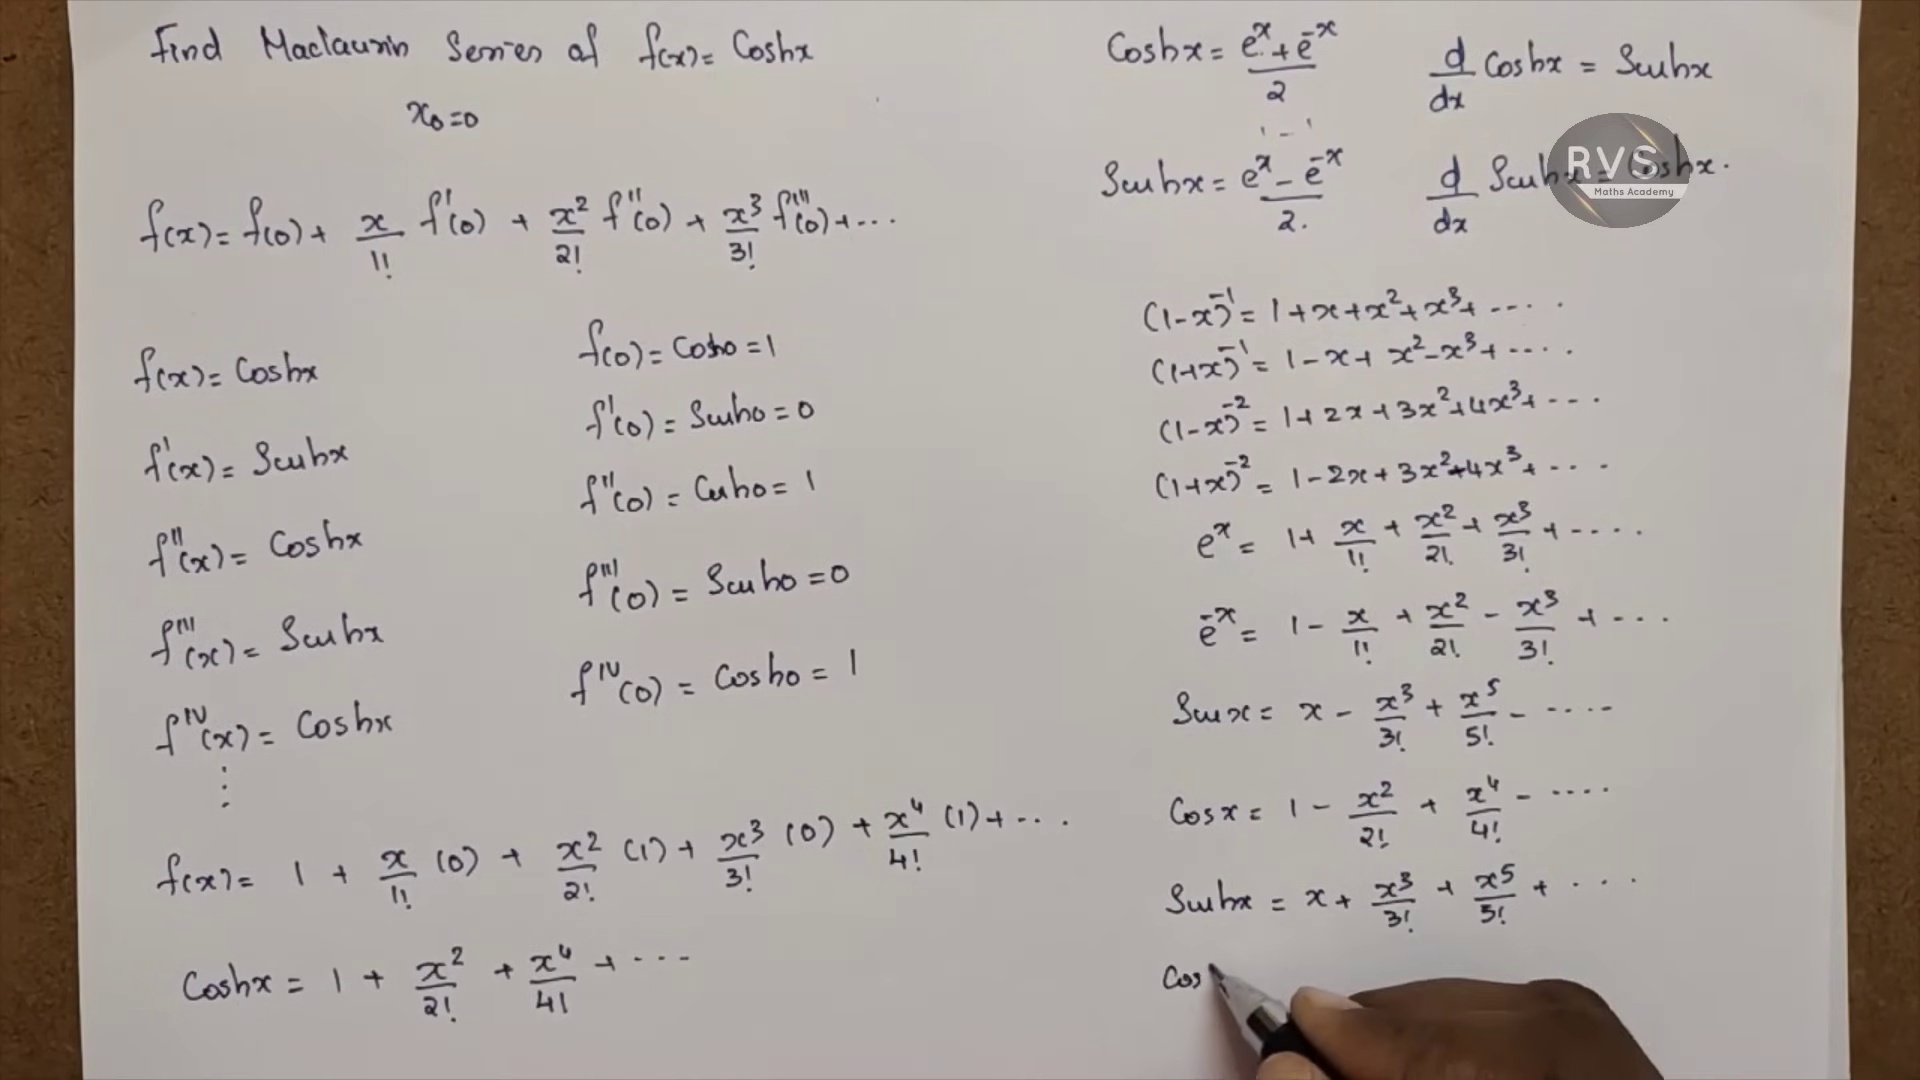 Find Maclaurin Series of f(x) = Coshx
x₀=0
f(x) = f(0) + x/1! f'(0) + x²/2! f''(0) + x³/3! f'''(0) + ...
f(x) = Coshx
f'(x) = Sinhx
f''(x) = Coshx
f'''(x) = Sinhx
f^IV(x) = Coshx
⋮
f(0) = Cosh0 = 1
f'(0) = Sinh0 = 0
f''(0) = Cosh0 = 1
f'''(0) = Sinh0 = 0
f^IV(0) = Cosh0 = 1
f(x) = 1 + x/1! (0) + x²/2! (1) + x³/3! (0) + x⁴/4! (1) + ...
Coshx = 1 + x²/2! + x⁴/4! + ...
Coshx = (e^x + e^-x)/2
d/dx Coshx = Sinhx
Sinhx = (e^x - e^-x)/2.
d/dx Sinhx = Coshx.
RVS
Maths Academy
(1-x)^-1 = 1+x+x²+x³+ ....
(1+x)^-1 = 1-x+x²-x³+ ....
(1-x)^-2 = 1+2x+3x²+4x³+ ...
(1+x)^-2 = 1-2x+3x²-4x³+ ...
e^x = 1+ x/1! + x²/2! + x³/3! + ....
e^-x = 1 - x/1! + x²/2! - x³/3! + ...
Sinx = x - x³/3! + x⁵/5! - ....
Cosx = 1 - x²/2! + x⁴/4! - ....
Sinhx = x + x³/3! + x⁵/5! + ...
Cos